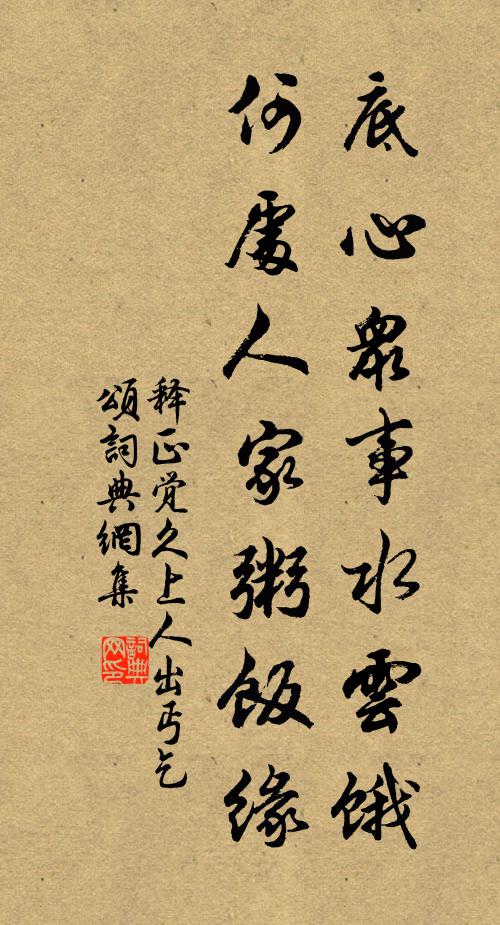 底心眾事水雲餓
何處人家粥飯緣
释正觉久上人出丐乞
頌詞典網集
詞典网印